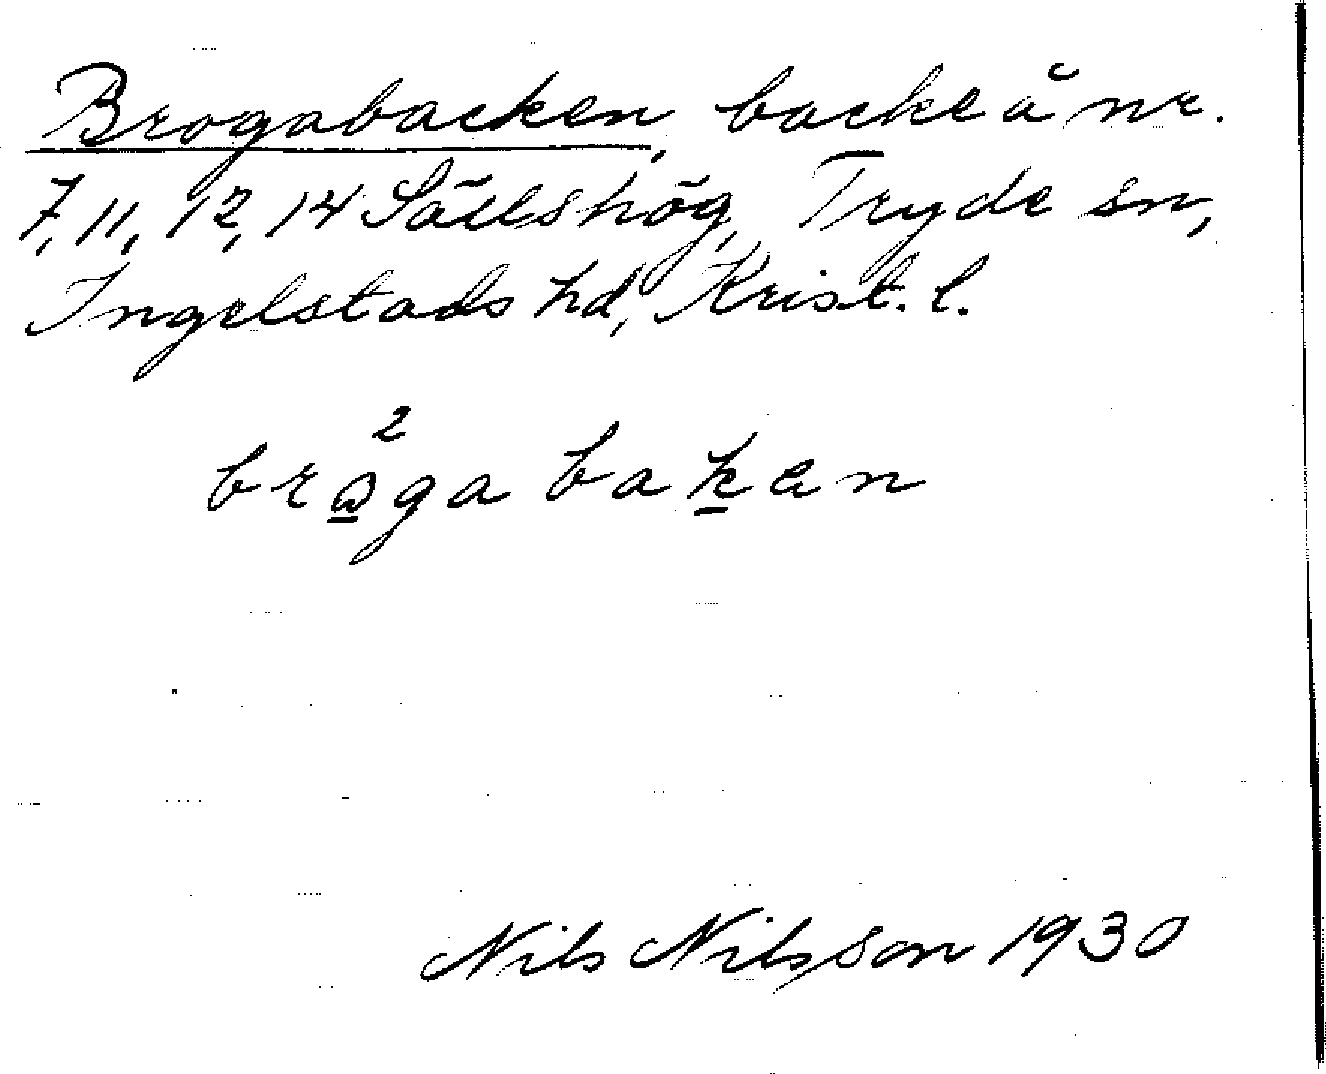 Brogabacken, backe å nr.
7, 11, 12, 14 Sällshög, Tryde sn,
Ingelstads hd, Krist. l.
2
brωga baken
Nils Nilsson 1930